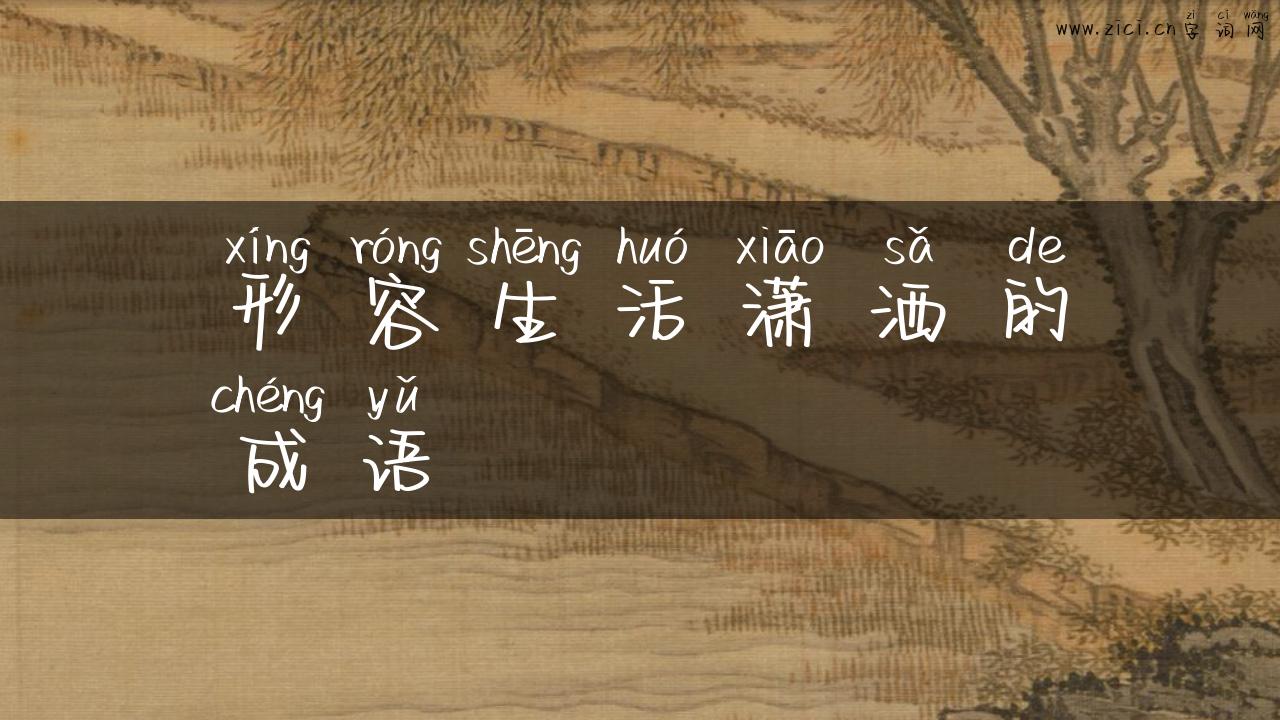 zì cí wǎng
www.zici.cn字词网
xíng róng shēng huó xiāo sǎ de
形容生活潇洒的
chéng yǔ
成语